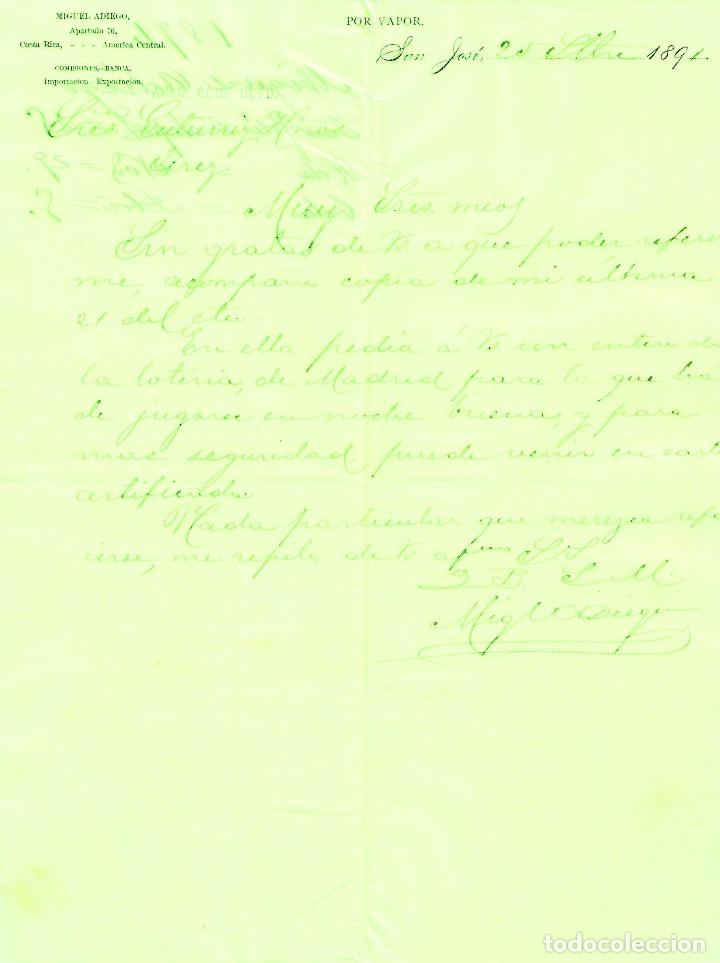 MIGUEL ADIEGO,
Apartado 76,
Costa Rica, - - - America Central.
COMISIONES,-BANCA,
Importacion Exportacion,
POR VAPOR.
San José, Stbre 1891.
Sres. Gutierrez Hnos
Jerez
Muy Sres. mios
Sin gratas de Vs. a que poder referir
me, acompaño copia de mi última
21 del cte.
En ella pedia á Vs. un entero de
la loteria, de Madrid para la que há
de jugarse en noche buena, y para
mas seguridad puede venir en carta
certificada.
Nada particular que merezca refe
rirse, me repito de Vs. S.S.
Q. B. S. M.
Migl Adiego
todocoleccion